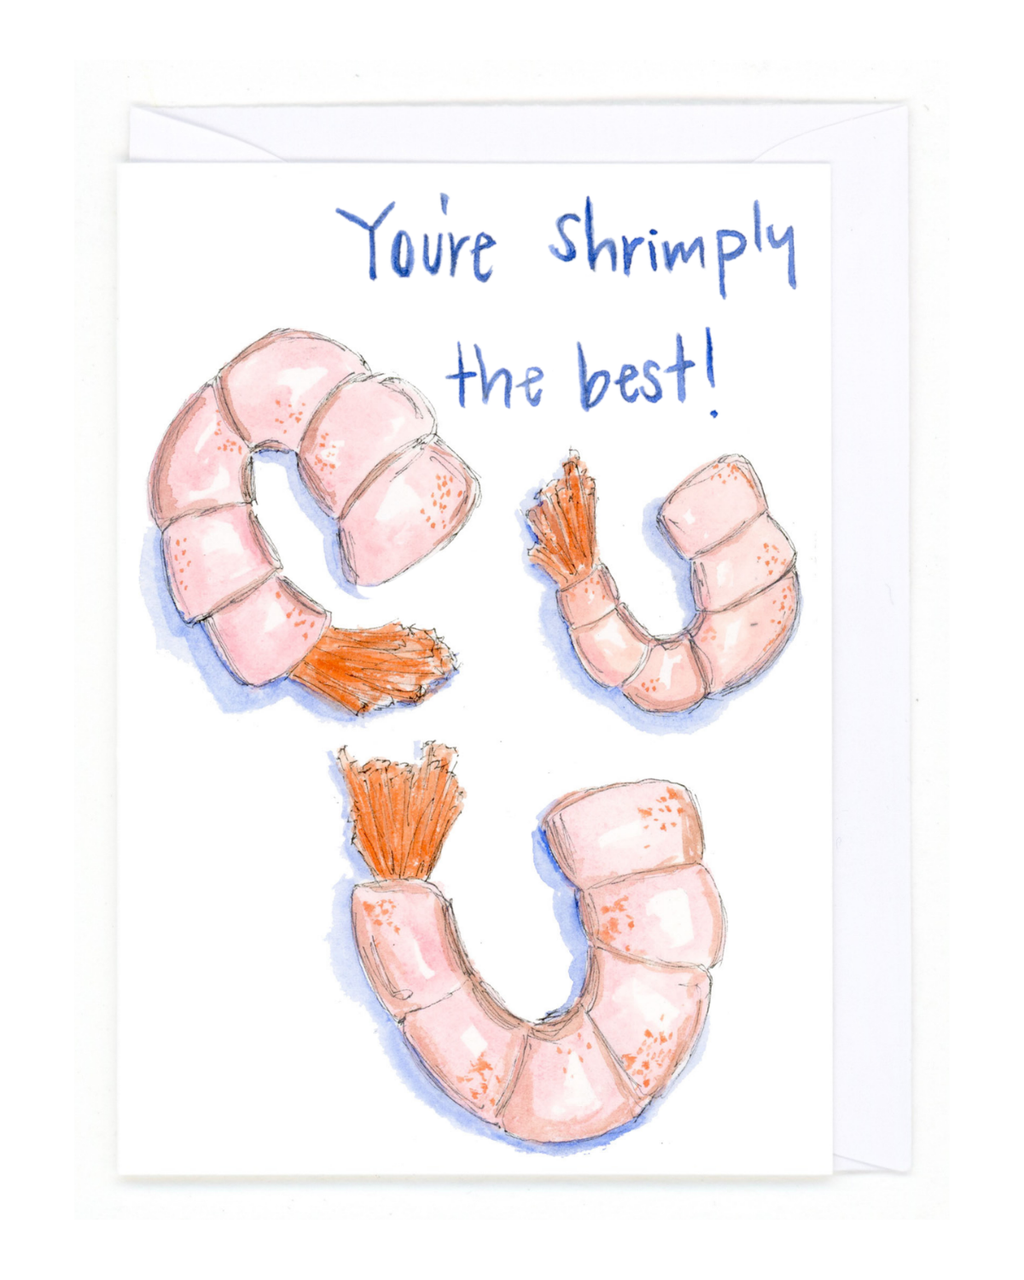 You're Shrimply
the best!